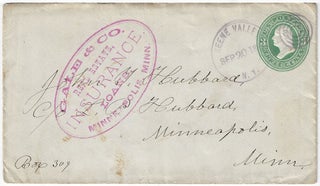 GALE & CO.
REAL ESTATE,
INSURANCE
LOANS
MINNEAPOLIS, MINN.
SEP 20
N.Y.
Hubbard
Hubbard,
Minneapolis,
Minn.
Box 309